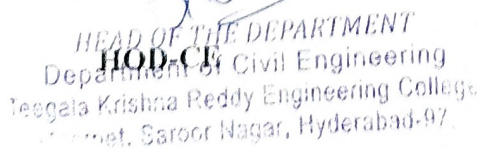 HEAD OF THE DEPARTMENT
HOD-CE
Department of Civil Engineering
Teegala Krishna Reddy Engineering College
Saroor Nagar, Hyderabad-97.